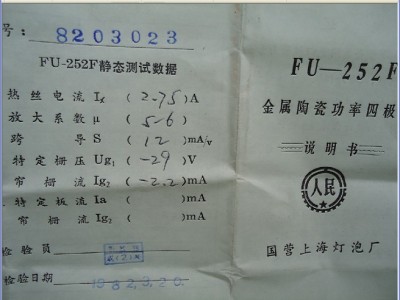 号: 8203023
FU-252F静态测试数据
热丝电流 If ( 2.75 ) A
放大系数 μ ( 5.6 )
跨 导 S ( 12 ) mA/v
特定栅压 Ug₁ ( -29 ) V
帘栅流 Ig₂ ( -2.2 ) mA
特定板流 Ia ( ) mA
帘栅流 Ig₂ ( ) mA
检验员
检验日期 1982.3.20.
FU—252F
金属陶瓷功率四极
说明书
人民
国营上海灯泡厂